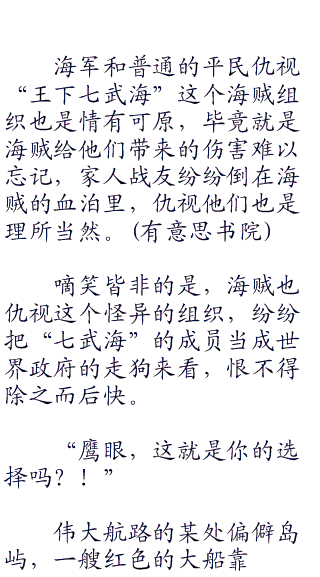 海军和普通的平民仇视
“王下七武海”这个海贼组
织也是情有可原，毕竟就是
海贼给他们带来的伤害难以
忘记，家人战友纷纷倒在海
贼的血泊里，仇视他们也是
理所当然。(有意思书院)
嘀笑皆非的是，海贼也
仇视这个怪异的组织，纷纷
把“七武海”的成员当成世
界政府的走狗来看，恨不得
除之而后快。
“鹰眼，这就是你的选
择吗？！”
伟大航路的某处偏僻岛
屿，一艘红色的大船靠